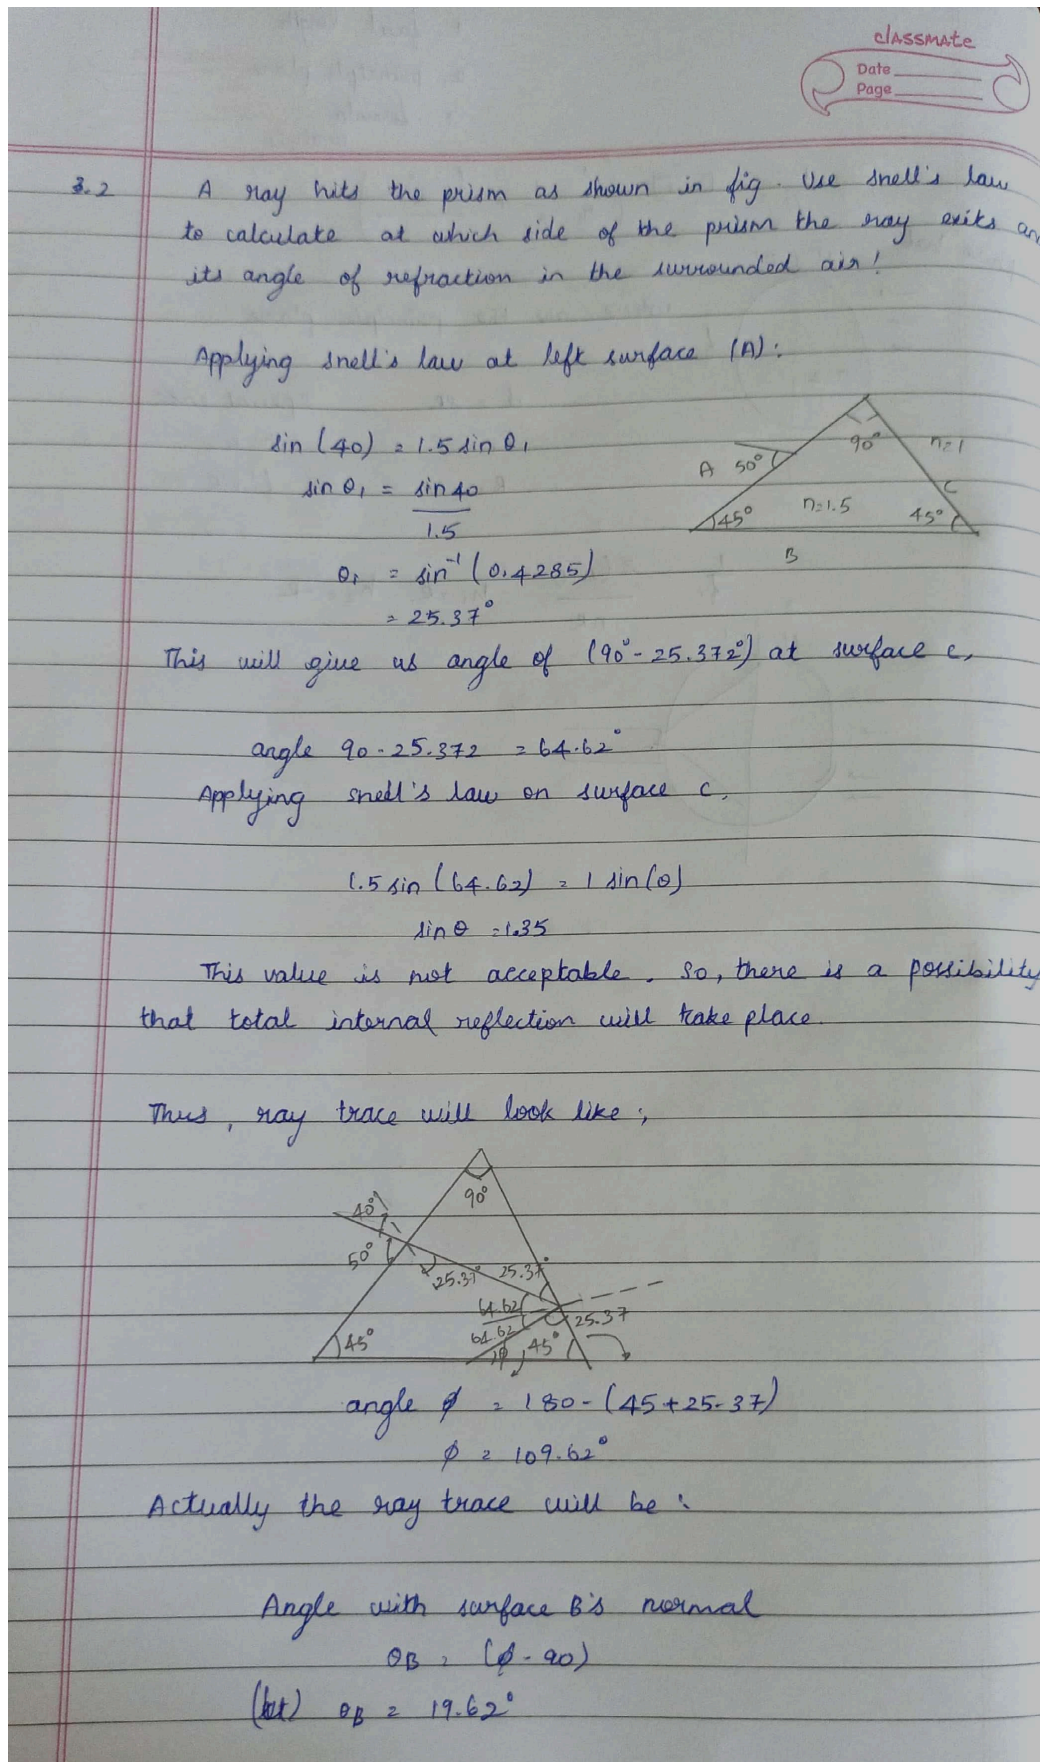 classmate
Date
Page
3.2 A ray hits the prism as shown in fig. Use snell's law
to calculate at which side of the prism the ray exits an
its angle of refraction in the surrounded air!
Applying snell's law at left surface (A):
sin (40) = 1.5 sin θ1
sin θ1 = sin 40
1.5
θ1 = sin⁻¹ (0.4285)
= 25.37°
90°
n=1
A 50°
C
45°
n=1.5
45°
B
This will give us angle of (90° - 25.372°) at surface c,
angle 90 - 25.372 = 64.62°
Applying snell's law on surface c,
1.5 sin (64.62) = 1 sin(θ)
sin θ = 1.35
This value is not acceptable. So, there is a possibility
that total internal reflection will take place.
Thus, ray trace will look like;
90°
40°
50°
25.37°
25.37°
64.62
64.62
25.37
45°
φ
45°
angle φ = 180 - (45 + 25.37)
φ = 109.62°
Actually the ray trace will be:
Angle with surface B's normal
θB = (φ - 90)
θB = 19.62°